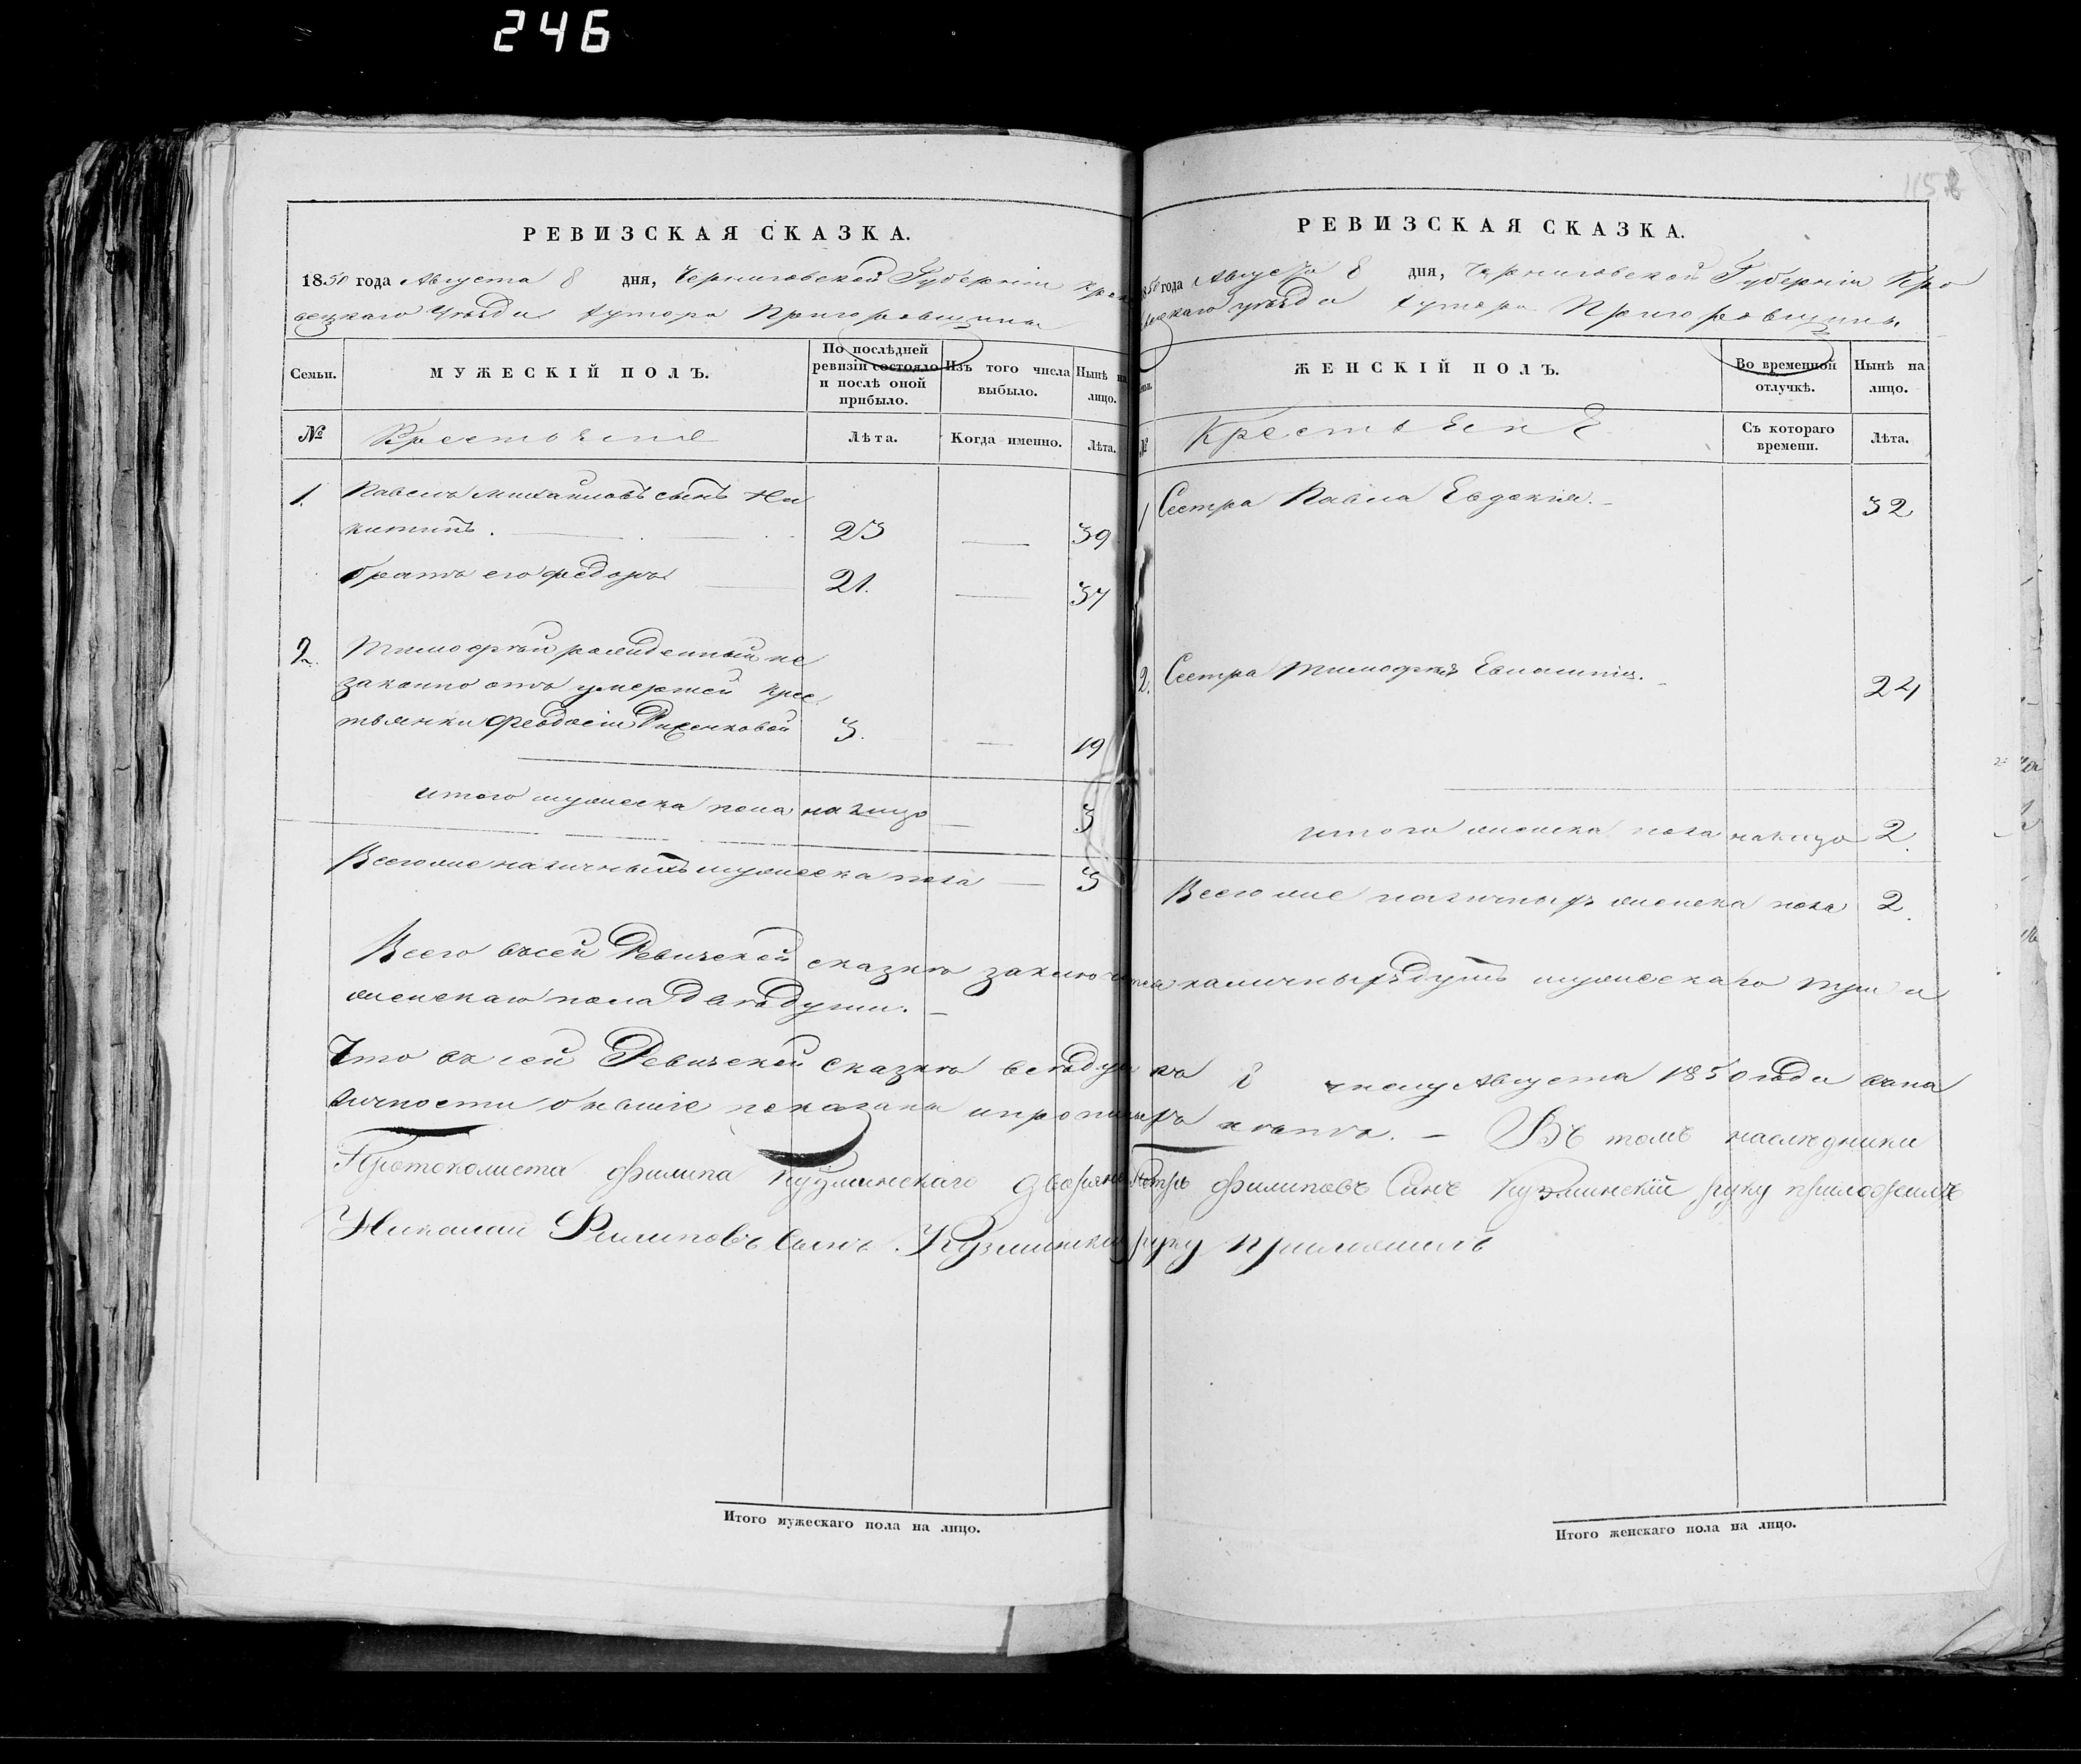 246
1158
РЕВИЗСКАЯ СКАЗКА.
1850 года Августа 8 дня, Черниговской Губерніи Кро
вецкаго Уѣзда хутора Пригоровщины
Семьи.
МУЖЕСКІЙ ПОЛЪ.
По послѣдней ревизіи состояло и послѣ оной прибыло.
Изъ того числа выбыло.
Нынѣ на лицо.
№
Крестьяне
Лѣта.
Когда именно.
Лѣта.
1. Павелъ Михайловъ сынъ Ни
китинъ. 23 — 39
братъ его Федоръ 21. — 37
2. Тимофѣй рожденный не
законно отъ умершей крес
тьянки Феодосіи 3. — 19
итого мужеска пола на лицо — 3
Всего же наличныхъ мужеска пола — 3
РЕВИЗСКАЯ СКАЗКА.
1850 года Августа 8 дня, Черниговской Губерніи Кро
вецкаго уѣзда хутора Пригоровщины
ЖЕНСКІЙ ПОЛЪ.
Во временной отлучкѣ.
Нынѣ на лицо.
№
Крестьяне
Съ котораго времени.
Лѣта.
1 Сестра Павла Евдокія. 32
2. Сестра Тимофѣя 24
итого женска пола налицо 2.
Всего же наличныхъ женска пола 2.
Всего въсей Ревизской сказкѣ заключается наличныхъ душъ мужескаго три и
женскаго пола двѣ души.
Что въ сей Ревизской сказкѣ всѣ души къ 8 числу Августа 1850 года въна
личности бывшіе показаны и прописныхъ нѣтъ. — Въ томъ наследники
Протоколиста Филипа Кузминскаго дворяне Петръ Филиповъ Сынъ Кузминскій руку приложилъ
Николай Филиповъ Сынъ Кузминскій руку приложилъ
Итого мужескаго пола на лицо.
Итого женскаго пола на лицо.